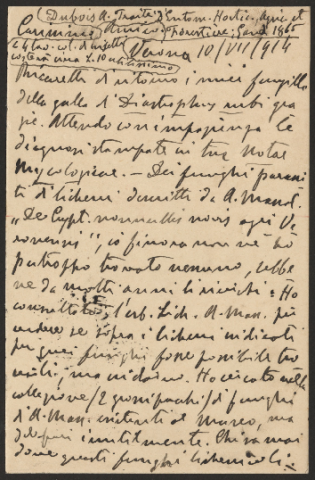 (Dubois A. Traité d'Entom. Hortic. Agric. et
Carissimo Amico, Forestière: Paris 1865
è 1 gro. vol. di
costerà circa 10 Verona 10/VII/914
di ritorno i miei
della galla d'Diastrophus rubi gra
zie. Attendo con impazienza le
diagnosi stampate in tue Notae
Mycologicae. — Dei funghi parassi
ti di licheni descritti da A. Mass.
"De Crypt. nonnullis novis agri Ve
ronensis", io finora non ne ho
purtroppo trovato nessuno, sebbe
ne da molti anni li ricerchi: Ho
consultato l'erb. Lich. A. Mass. per
vedere se sopra i licheni indicati
per quei funghi fosse possibile tro
varli, ma indarno. Ho cercato nelle
collezione (2 grossi pacchi) di funghi
d'A. Mass. esistenti al Museo, ma
inutilmente. Chi sa mai
dove questi funghi lichenicoli —